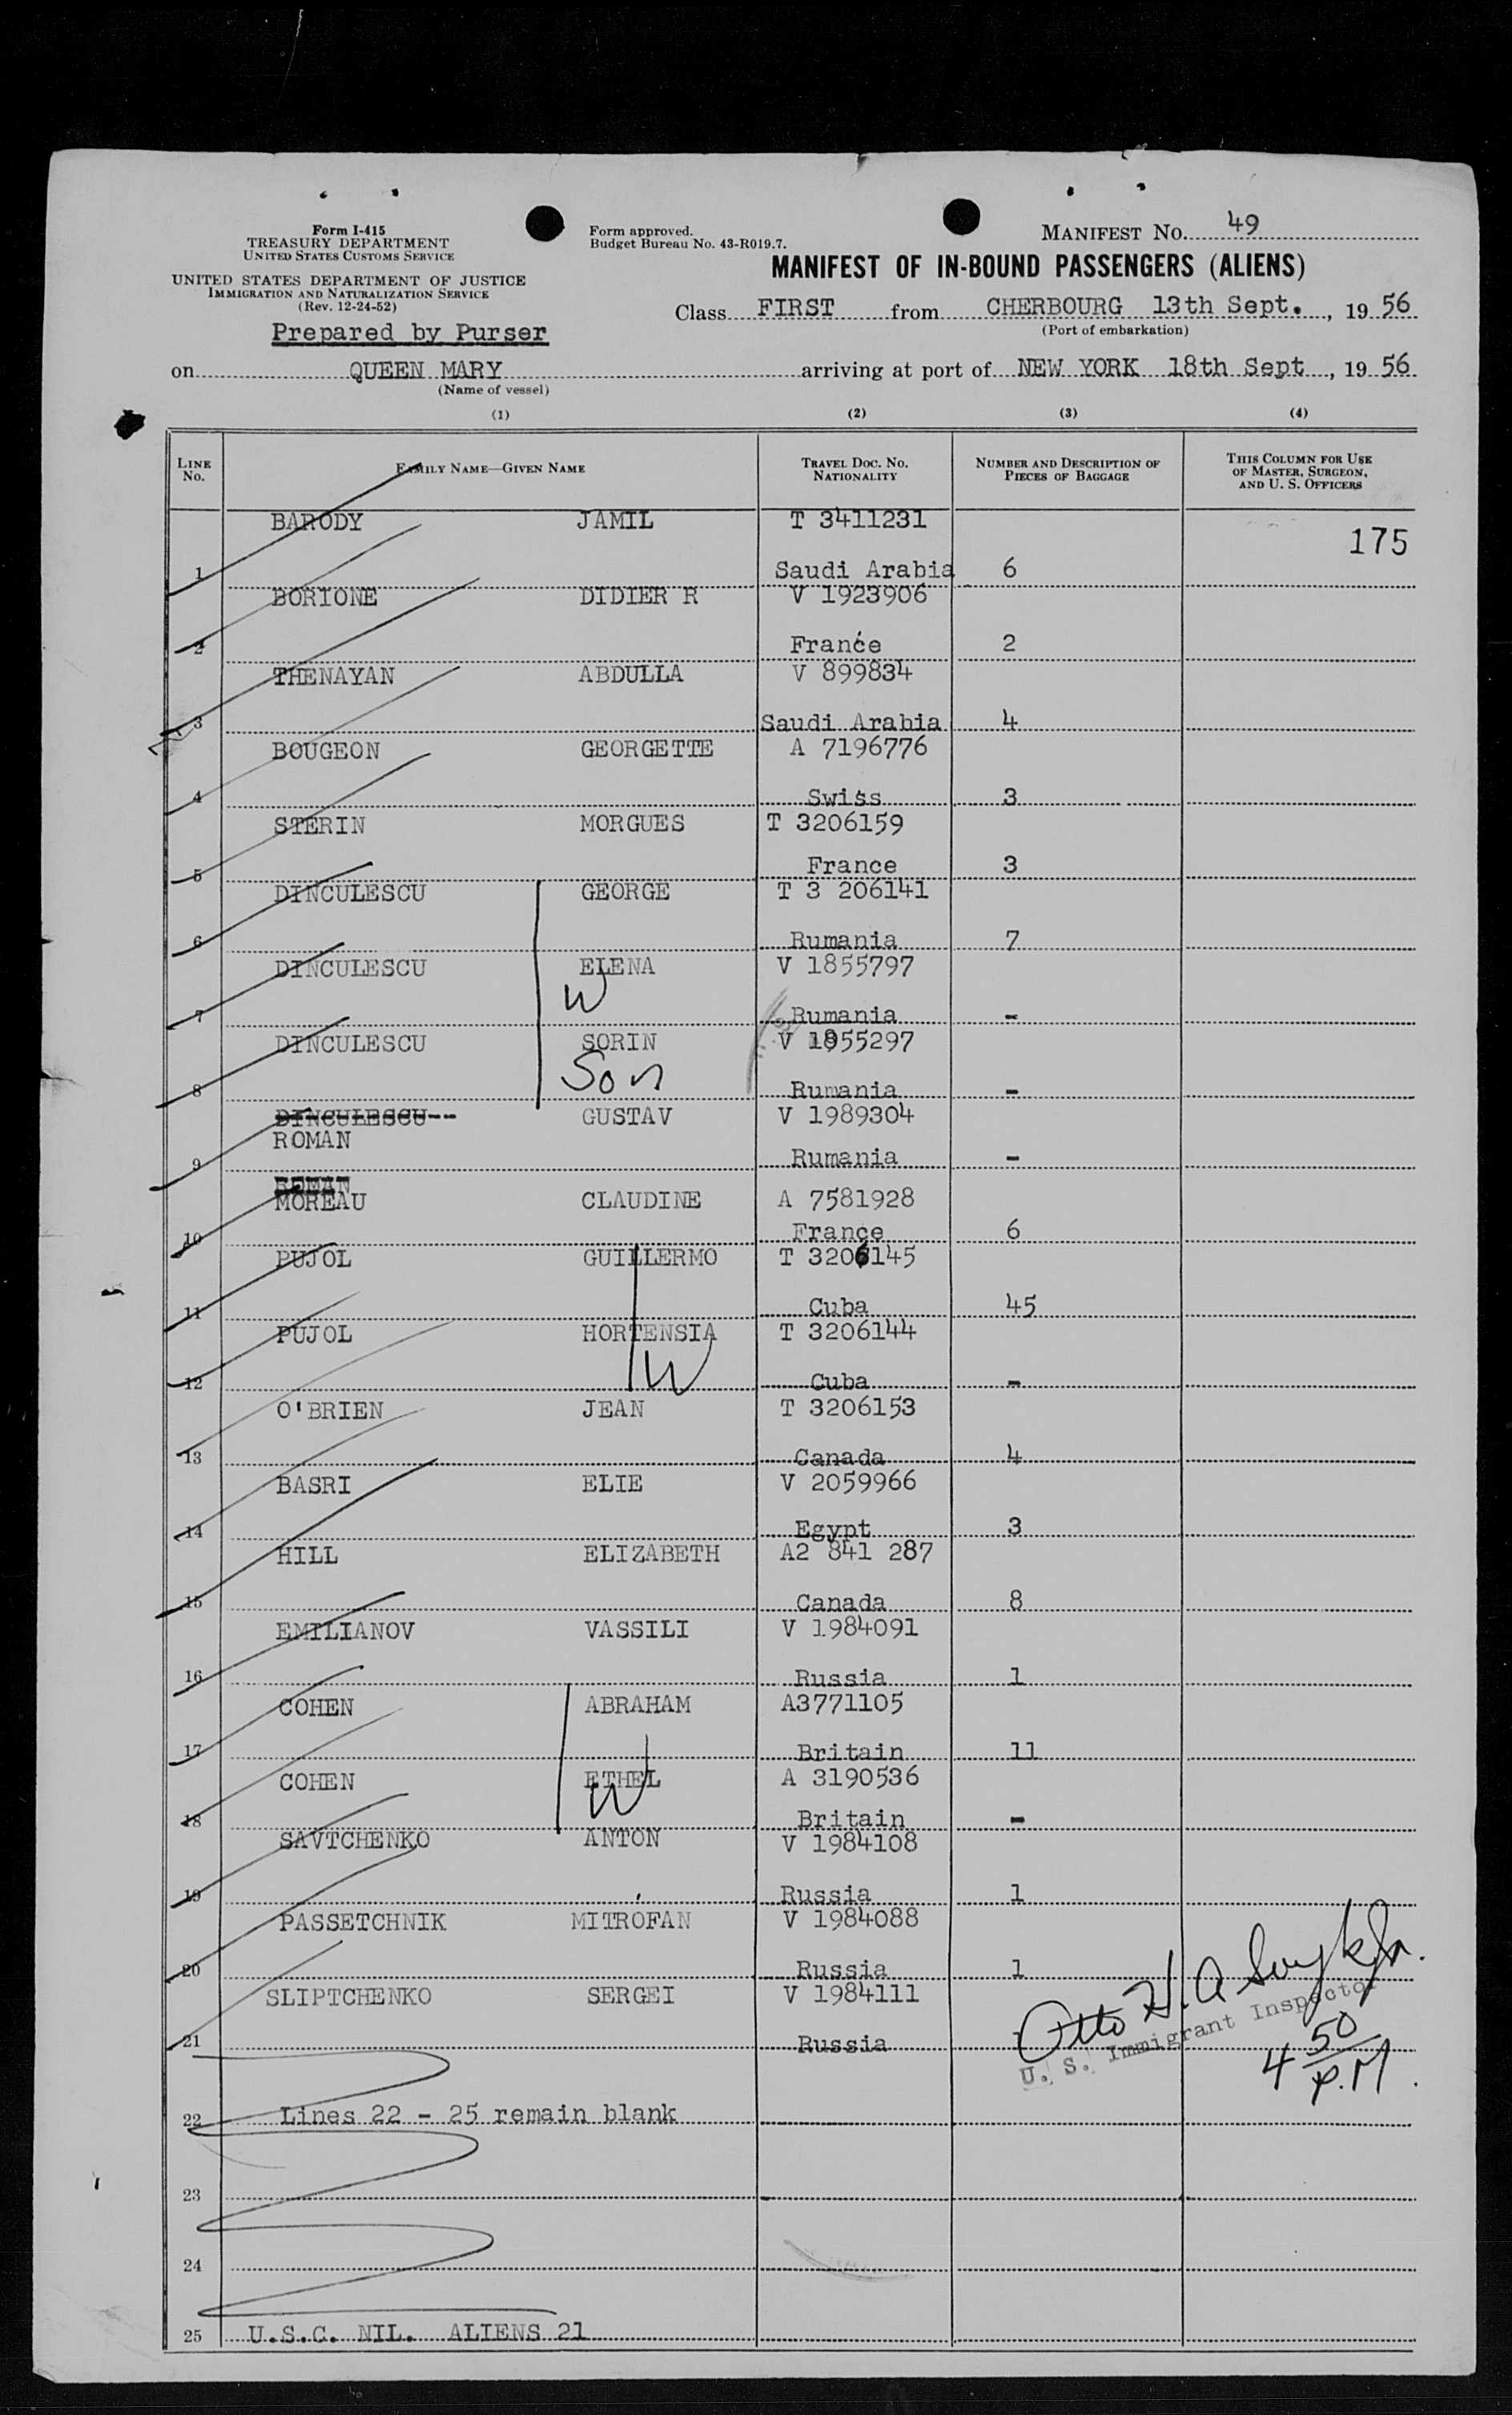 Form I-415
TREASURY DEPARTMENT
UNITED STATES CUSTOMS SERVICE
UNITED STATES DEPARTMENT OF JUSTICE
IMMIGRATION AND NATURALIZATION SERVICE
(Rev. 12-24-52)
Prepared by Purser
Form approved.
Budget Bureau No. 43-R019.7.
MANIFEST No. 49
MANIFEST OF IN-BOUND PASSENGERS (ALIENS)
Class FIRST from CHERBOURG 13th Sept. , 19 56
(Port of embarkation)
on QUEEN MARY arriving at port of NEW YORK 18th Sept , 19 56
(Name of vessel)
(1) (2) (3) (4)
LINE No. FAMILY NAME—GIVEN NAME TRAVEL DOC. NO. NATIONALITY NUMBER AND DESCRIPTION OF PIECES OF BAGGAGE THIS COLUMN FOR USE OF MASTER, SURGEON, AND U. S. OFFICERS
BARODY JAMIL T 3411231 175
1 Saudi Arabia 6
BORIONE DIDIER R V 1923906
2 France 2
THENAYAN ABDULLA V 899834
3 Saudi Arabia 4
BOUGEON GEORGETTE A 7196776
4 Swiss 3
STERIN MORGUES T 3206159
5 France 3
DINCULESCU GEORGE T 3 206141
6 Rumania 7
DINCULESCU ELENA V 1855797
W
7 Rumania -
DINCULESCU SORIN V 1855297
Son
8 Rumania -
DINCULESCU-- GUSTAV V 1989304
ROMAN
9 Rumania -
ROMAN
MOREAU CLAUDINE A 7581928
10 France 6
PUJOL GUILLERMO T 3206145
11 Cuba 45
PUJOL HORTENSIA T 3206144
W
12 Cuba -
O'BRIEN JEAN T 3206153
13 Canada 4
BASRI ELIE V 2059966
14 Egypt 3
HILL ELIZABETH A2 841 287
15 Canada 8
EMILIANOV VASSILI V 1984091
16 Russia 1
COHEN ABRAHAM A3771105
17 Britain 11
COHEN ETHEL A 3190536
W
18 Britain -
SAVTCHENKO ANTON V 1984108
19 Russia 1
PASSETCHNIK MITROFAN V 1984088
20 Russia 1
SLIPTCHENKO SERGEI V 1984111
21 Russia
Otto H. A
U. S. Immigrant Inspector
4 50 P.M.
22 Lines 22 - 25 remain blank
23
24
25 U.S.C. NIL. ALIENS 21